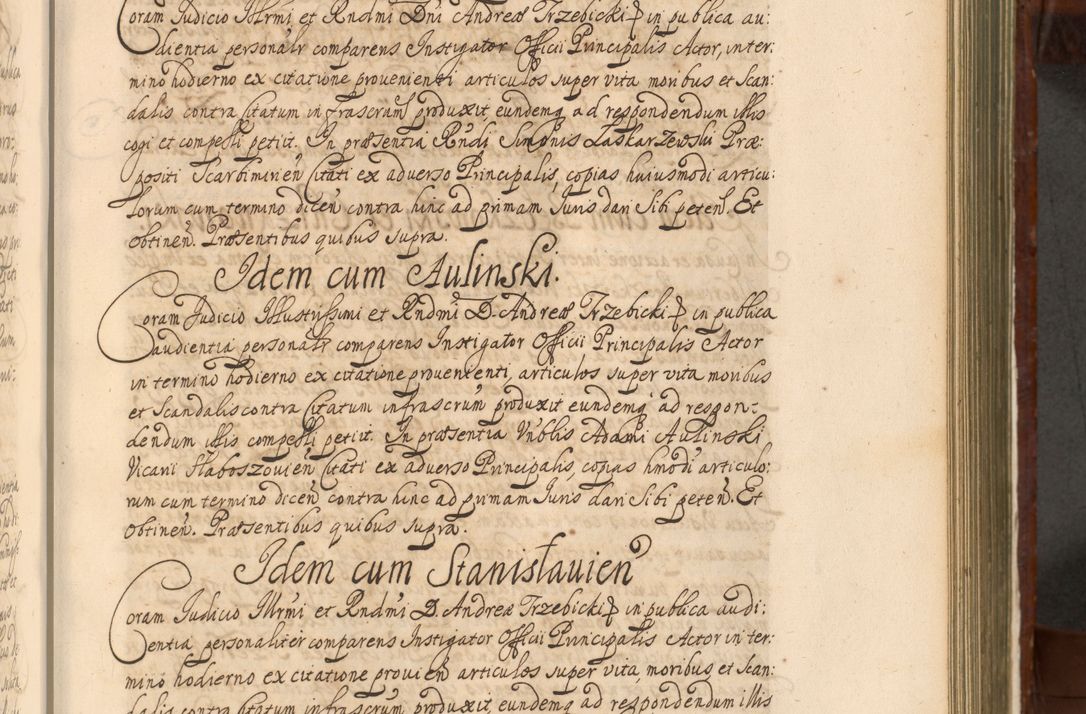 Coram Judicio Illrmi et Rndmi Dni Andreæ Trzebicki in publica au:
dientia personalr comparens Instigator Officii Principalis Actor, in ter:
mino hodierno ex citatione provenienti articulos super vita moribus et Scan:
dalis contra Citatum infrascrum produxit, eundemq ad respondendum illis
cogi et compelli petiit. In præsentia Rndi Simonis Laskarzewski Præ:
positi Scarbimirien Citati ex adverso Principalis, copias huiusmodi articu:
lorum cum termino dicen contra hinc ad primam Juris dari Sibi peten. Et
obtinen. Præsentibus quibus supra.
Idem cum Aulinski.
Coram Judicio Illustrissimi et Rndmi D. Andreæ Trzebicki in publica
audientia personalr comparens Instigator Officii Principalis Actor
in termino hodierno ex citatione provenienti, articulos super vita moribus
et Scandalis contra Citatum infrascrum produxit eundemq ad respon-
dendum illis compelli petiit. In præsentia Vnblis Adami Aulinski
Vicarii Slaboszovien Citati ex adverso Principalis, copias hmodi articulo:
rum cum termino dicen contra hinc ad primam Juris dari Sibi peten. Et
Obtinen. Præsentibus quibus supra.
Idem cum Stanisławien
Coram Judicio Illrmi et Rndmi D. Andreæ Trzebicki in publica audi:
entia personaliter comparens Instigator Officii Principalis Actor in ter:
mino hodierno ex citatione provien articulos super vita, moribus, et Scan:
dalis contra Citatum infrascrum produxit, eundemq ad respondendum illis